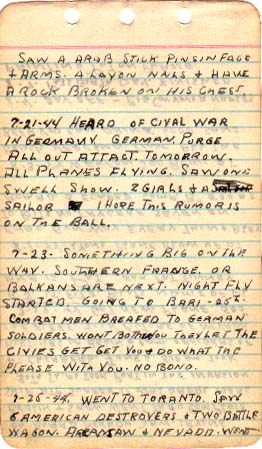 SAW A ARAB STICK PINS IN FACE
+ ARMS. ALAYON NNLS + HAVE
A ROCK BROKEN ON HIS CHEST.
7-21-44 HEARD OF CIVAL WAR
IN GERMANY GERMAN. PURGE
ALL OUT ATTACT. TOMORROW.
ALL PLANES FLYING. SAW ONE
SWELL SHOW. 2 GIRLS + A
SAILOR I HOPE THIS RUMOR IS
ON THE BALL.
7-23- SOMETHING BIG ON THE
WAY. SOUTHERN FRANCE. OR
BALKANS ARE NEXT. NIGHT FLY
STARTED. GOING TO BARI - 25th.
COMBAT MEN BREAFED TO GERMAN
SOLDIERS. WONT BOTHER YOU THEY LET THE
CIVIES GET GET YOU + DO WHAT THE
PLEASE WITH YOU. NO BONO.
7-25-44. WENT TO TORANTO. SAW
6 AMERICAN DESTROYERS + TWO BATTLE
WAGON. ARKANSAW + NEVADA. WENT